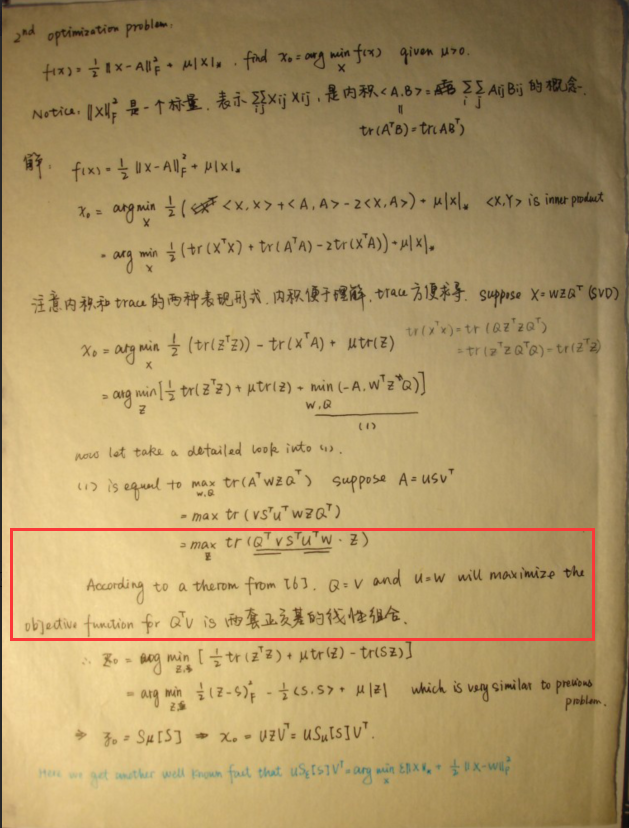 2nd optimization problem.
f(x) = 1/2 ||X-A||_F^2 + μ|X|_*, find x_0 = arg min_X f(x) given μ>0.
Notice. ||X||_F^2 是一个标量. 表示 ΣΣ_ij X_ij X_ij, 是内积 <A,B> = Σ_i Σ_j A_ij B_ij 的概念.
||
tr(A^T B) = tr(AB^T)
解. f(x) = 1/2 ||X-A||_F^2 + μ|X|_*
x_0 = arg min_X 1/2 ( <X,X> + <A,A> - 2<X,A>) + μ|X|_* <X,Y> is inner product
= arg min_X 1/2 (tr(X^T X) + tr(A^T A) - 2tr(X^T A)) + μ|X|_*
注意内积和trace的两种表现形式, 内积便于理解, trace方便求导. suppose X = WZQ^T (SVD)
x_0 = arg min_X 1/2 (tr(Z^T Z)) - tr(X^T A) + μtr(Z) tr(X^T X) = tr(QZ^T ZQ^T)
= tr(Z^T ZQ^T Q) = tr(Z^T Z)
= arg min_Z [1/2 tr(Z^T Z) + μtr(Z) + min_{W,Q} (-A, W^T Z Q)]
(1)
now let take a detailed look into (1).
(1) is equal to max_{W,Q} tr(A^T WZQ^T) suppose A = USV^T
= max tr(VS^T U^T WZQ^T)
= max_Z tr(Q^T VS^T U^T W · Z)
According to a therom from [6]. Q=V and U=W will maximize the
objective function for Q^T V is 两套正交基的线性组合.
∴ Z_0 = arg min_Z [1/2 tr(Z^T Z) + μtr(Z) - tr(SZ)]
= arg min_Z 1/2 (Z-S)_F^2 - 1/2 <S.S> + μ|Z| which is very similar to previous
problem.
⇒ z_0 = Sμ[S] ⇒ x_0 = UZV^T = USμ[S]V^T.
Here we get another well known fact that US_ε[S]V^T = arg min_X ε||X||_* + 1/2 ||X-W||_F^2